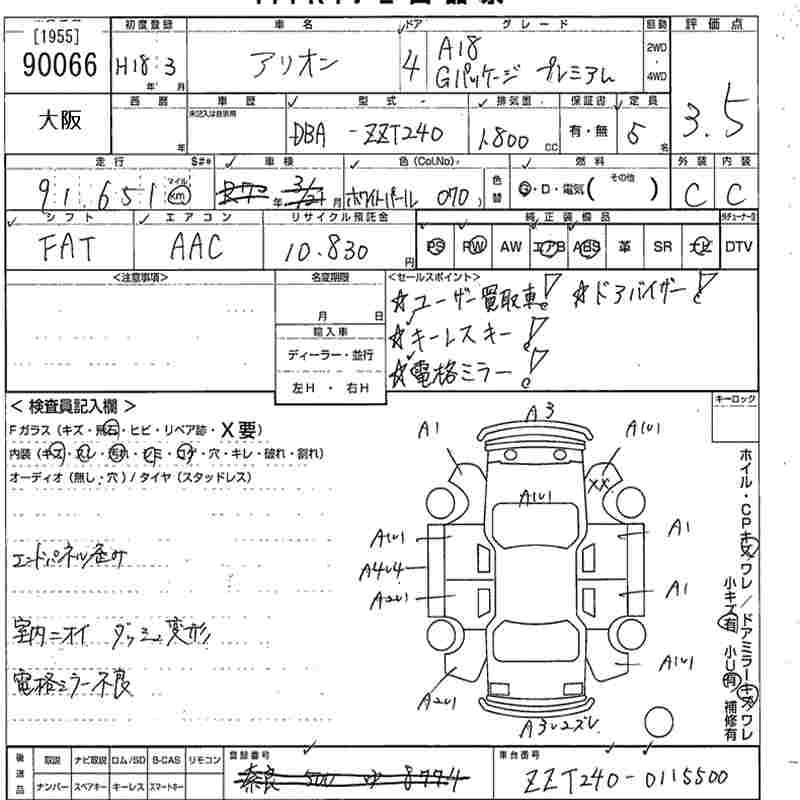 [1955]
90066
大阪
初度登録 車名 ドア グレード 駆動 評価点
H18 3 年 月 アリオン 4 A18 Gパッケージ プレミアム 2WD・4WD 3.5
西暦 車歴 型式 排気量 保証書 定員
年 未記入は自家用 DBA -ZZT240 1.800 CC 有・無 5名
走行 S#* 車検 色(Col,No) 燃料 外装 内装
91,651 マイル km 年 3/21 月 ホワイトパール 070 色替 G・D・電気( その他 ) C C
シフト エアコン リサイクル預託金 純正装備品
FAT AAC 10.830 円 PS PW AW エアB ABS 革 SR ナビ DTV
<注意事項>
名変期限
月 日
輸入車
ディーラー・並行
左H ・ 右H
<セールスポイント>
☆ユーザー買取車! ☆ドアバイザー!
☆キーレスキー!
☆電格ミラー!
<検査員記入欄>
Fガラス(キズ・飛石・ヒビ・リペア跡・X要)
内装(キズ・スレ・汚れ・シミ・コゲ・穴・キレ・破れ・割れ)
オーディオ(無し・穴)/タイヤ(スタッドレス)
エンドパネル歪み
室内ニオイ ダッシュ変形
電格ミラー不良
キーロック
A3
A1 A1U1
XX
A1U1
A1U1 A1
A4U4
A2U1 A1
A2U1 A1U1
A3U2ズレ
ホイル・CPキズワレ/ドアミラーキズワレ
小キズ有 小U有 補修有
後送品 取説 ナビ取説 ロム/SD B-CAS リモコン
ナンバー スペアキー キーレス スマートキー
登録番号
奈良 500 ゆ 8774
車台番号
ZZT240-0115500